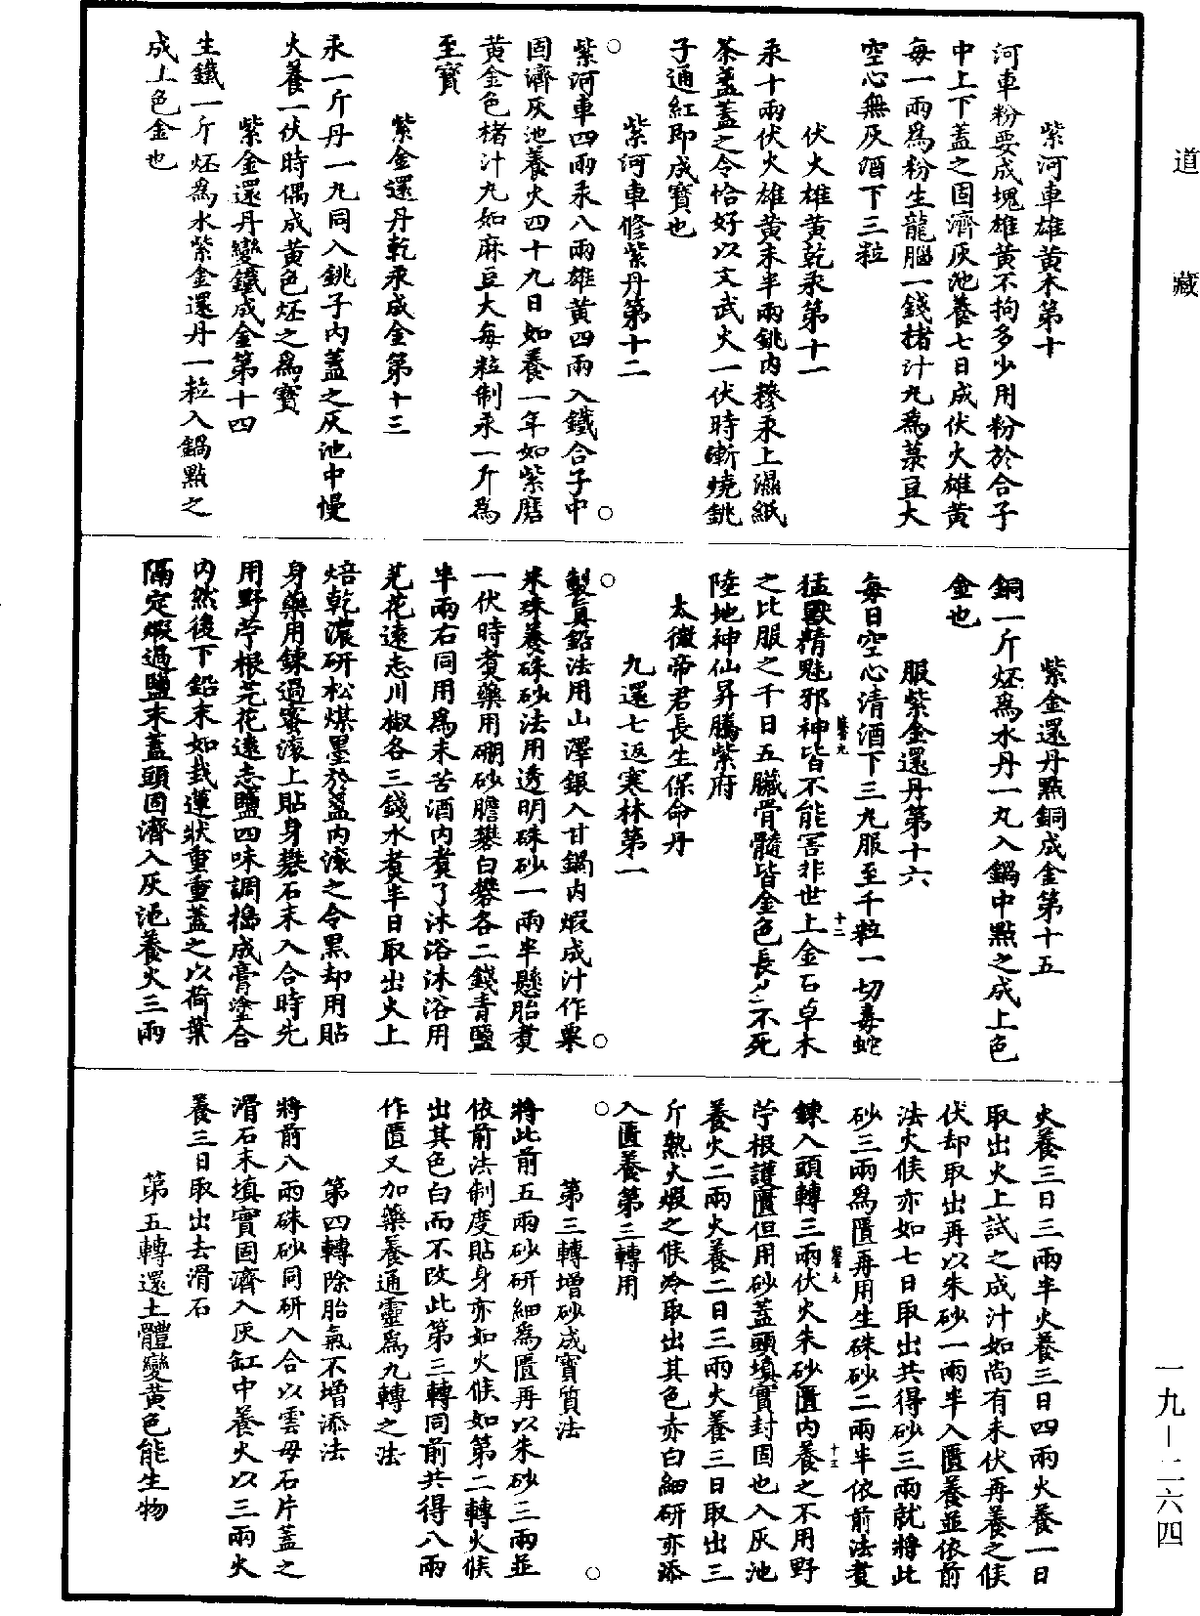 道藏
紫河車雄黃末第十
河車粉要成塊雄黃不拘多少用粉於合子
中上下蓋之固濟灰池養七日成伏火雄黃
每一兩爲粉生龍腦一錢楮汁丸爲菉豆大
空心無灰酒下三粒
伏火雄黃乾汞第十一
汞十兩伏火雄黃末半兩銚內糝汞上濕紙
茶盞蓋之令恰好以文武火一伏時漸燒銚
子通紅即成寶也
紫河車修紫丹第十二
紫河車四兩汞八兩雄黃四兩入鐵合子中
固濟灰池養火四十九日如養一年如紫磨
黃金色楮汁丸如麻豆大每粒制汞一斤爲
至寶
紫金還丹乾汞成金第十三
汞一斤丹一丸同入銚子內蓋之灰池中慢
火養一伏時偶成黃色炢之爲寶
紫金還丹變鐵成金第十四
生鐵一斤炢爲水紫金還丹一粒入鍋點之
成上色金也
紫金還丹點銅成金第十五
銅一斤炢爲水丹一丸入鍋中點之成上色
金也
服紫金還丹第十六
每日空心清酒下三丸服至千粒一切毒蛇
猛獸精魅邪神皆不能害非世上金石草木
之比服之千日五臟骨髓皆金色長生不死
陸地神仙昇騰紫府
太微帝君長生保命丹
九還七返寒林第一
製眞鉛法用山澤銀入甘鍋內煆成汁作粟
米珠養硃砂法用透明硃砂一兩半懸胎煑
一伏時煑藥用硼砂膽礬白礬各二錢青鹽
半兩右同用爲末苦酒內煑了沐浴沐浴用
芫花遠志川椒各三錢水煑半日取出火上
焙乾濃研松煤墨於盞內滚之令黑却用貼
身藥用鍊過蜜滚上貼身礬石末入合時先
用野苧根芫花遠志鹽四味調搗成膏塗合
內然後下鉛末如封蓮狀重重蓋之以荷葉
隔定煆過鹽末蓋頭固濟入灰池養火三兩
火養三日三兩半火養三日四兩火養一日
取出火上試之成汁如尚有未伏再養之候
伏却取出再以朱砂一兩半入匱養並依前
法火候亦如七日取出共得砂三兩就將此
砂三兩爲匱再用生硃砂二兩半依前法煑
鍊入頭轉三兩伏火朱砂匱內養之不用野
苧根護匱但用砂蓋頭填實封固也入灰池
養火二兩火養二日三兩火養三日取出三
斤熟火煆之候冷取出其色赤白細研亦添
入匱養第三轉用
第三轉增砂成寶質法
將此前五兩砂研細爲匱再以朱砂三兩並
依前法制度貼身亦如火候如第二轉火候
出其色白而不改此第三轉同前共得八兩
作匱又加藥養通靈爲九轉之法
第四轉除胎氣不增添法
將前八兩硃砂同研入合以雲母石片蓋之
滑石末填實固濟入灰缸中養火以三兩火
養三日取出去滑石
第五轉還土體變黃色能生物
一九—二六四